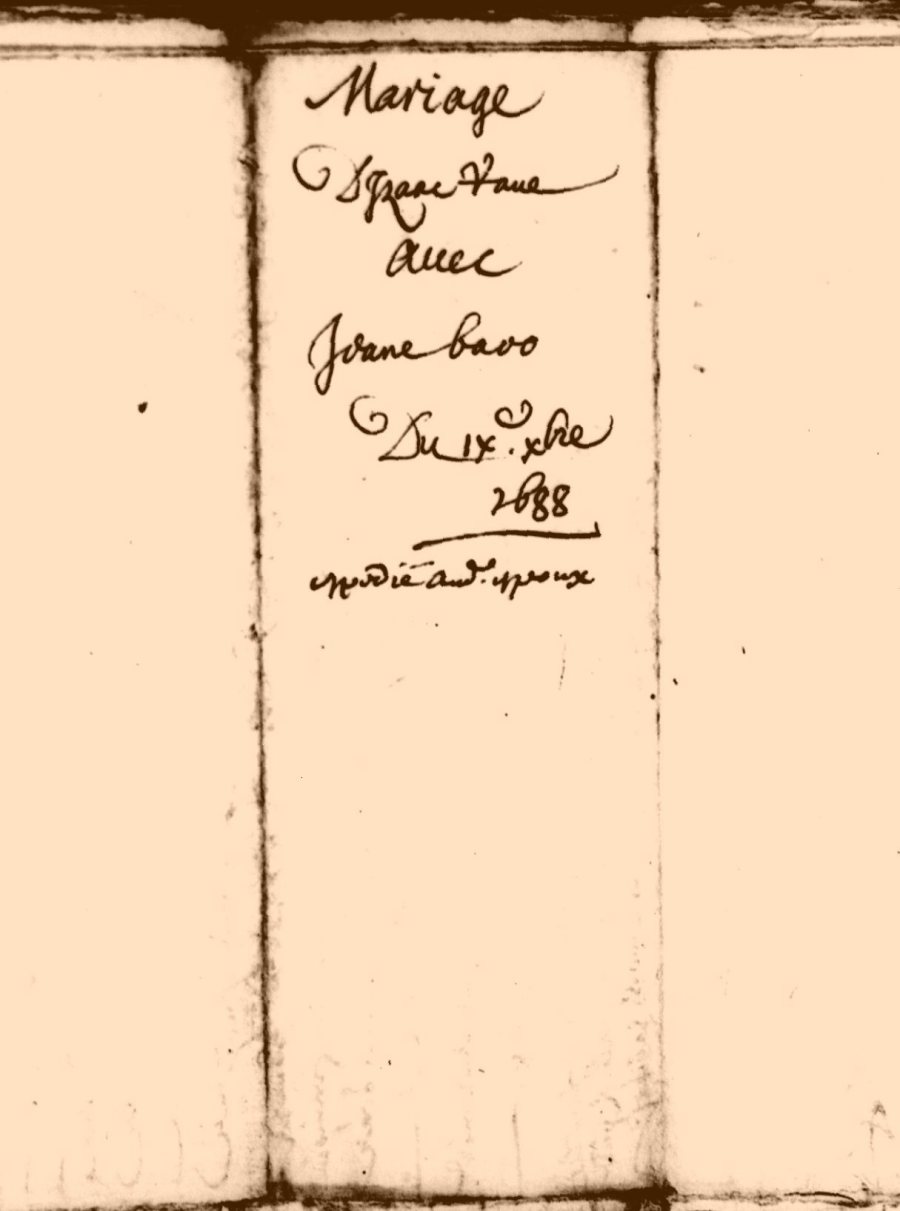 Mariage
D Izaac Vaue
auec
Joane bavo
Du IX.e xbre
1688
expedié aud.t epoux